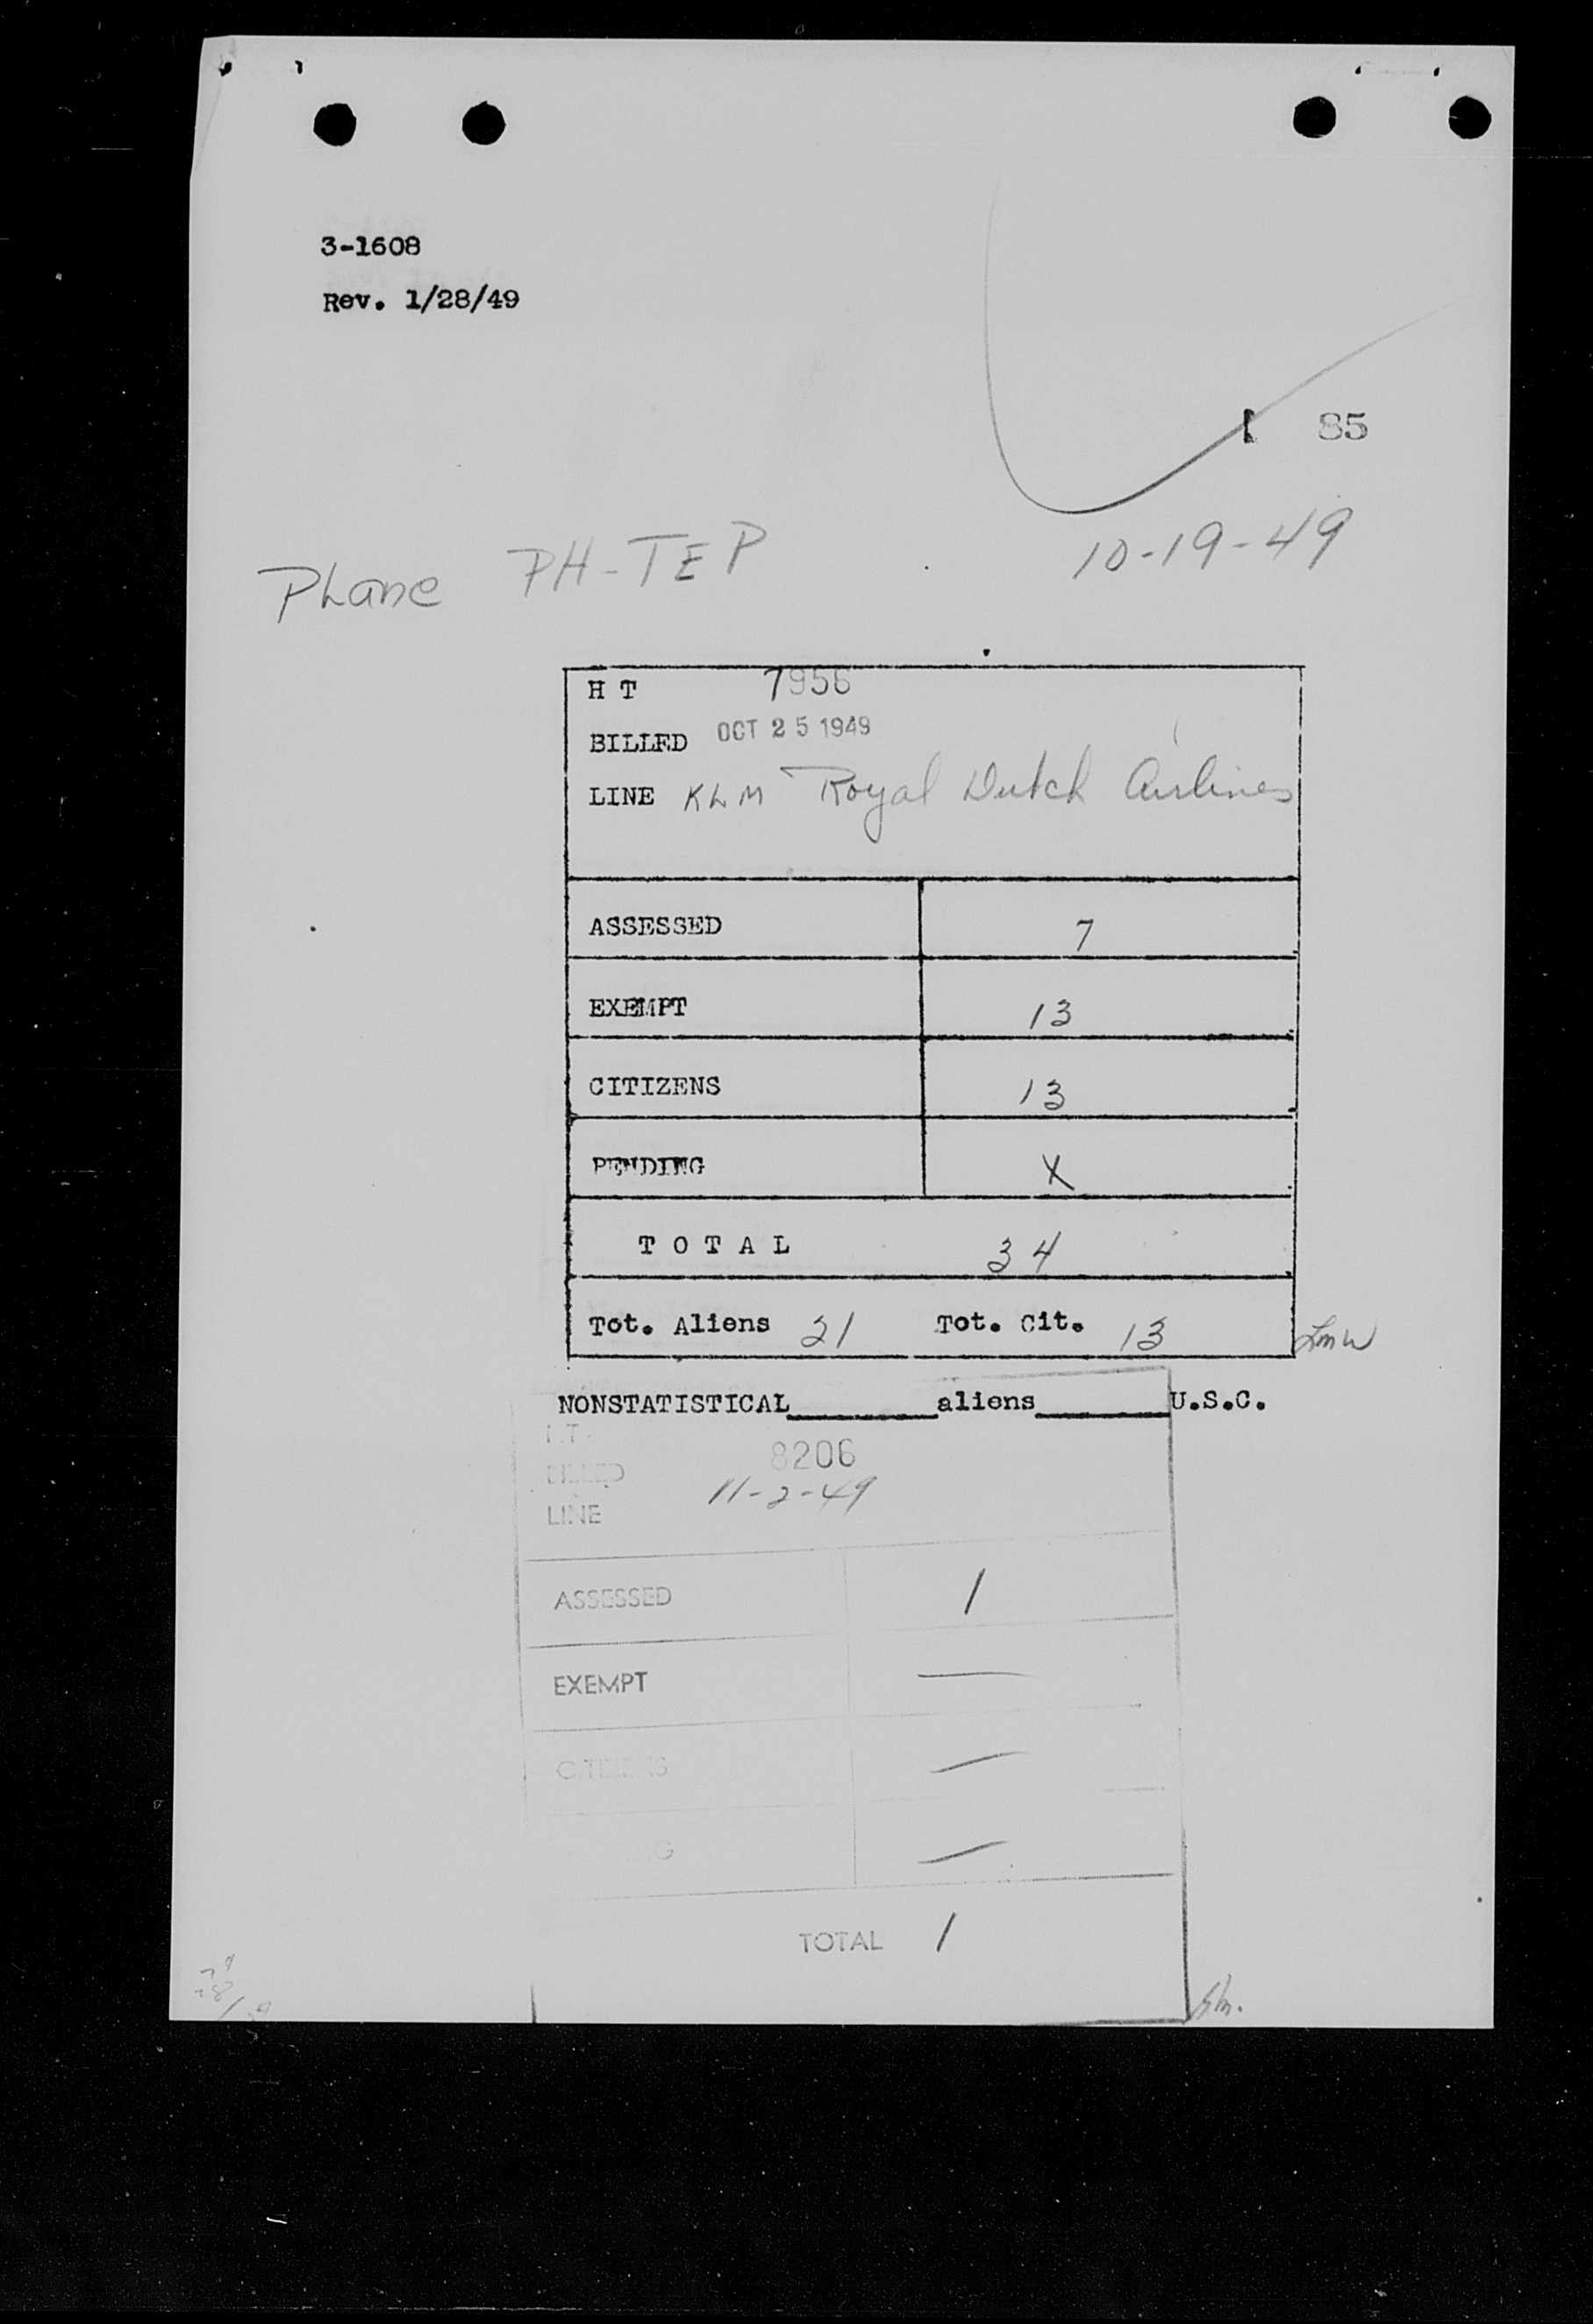 3-1608
Rev. 1/28/49
85
Plane PH-TEP 10-19-49
H T 7956
BILLED OCT 25 1949
LINE KLM Royal Dutch Airlines
ASSESSED 7
EXEMPT 13
CITIZENS 13
PENDING X
TOTAL 34
Tot. Aliens 21 Tot. Cit. 13
NONSTATISTICAL________aliens_______U.S.C.
8206
BILLED 11-2-49
LINE
ASSESSED 1
EXEMPT —
CITIZENS —
—
TOTAL 1